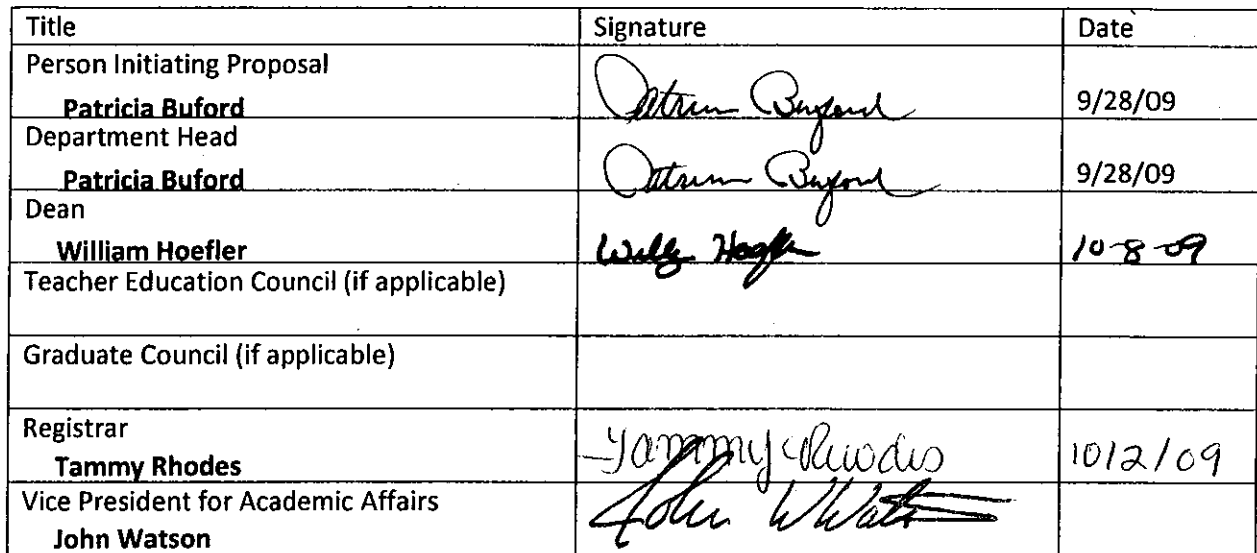 Title Signature Date
Person Initiating Proposal
Patricia Buford Patricia Buford 9/28/09
Department Head
Patricia Buford Patricia Buford 9/28/09
Dean
William Hoefler Willy Hoefler 10-8-09
Teacher Education Council (if applicable)
Graduate Council (if applicable)
Registrar
Tammy Rhodes Tammy Rhodes 1012/09
Vice President for Academic Affairs
John Watson John W Watson